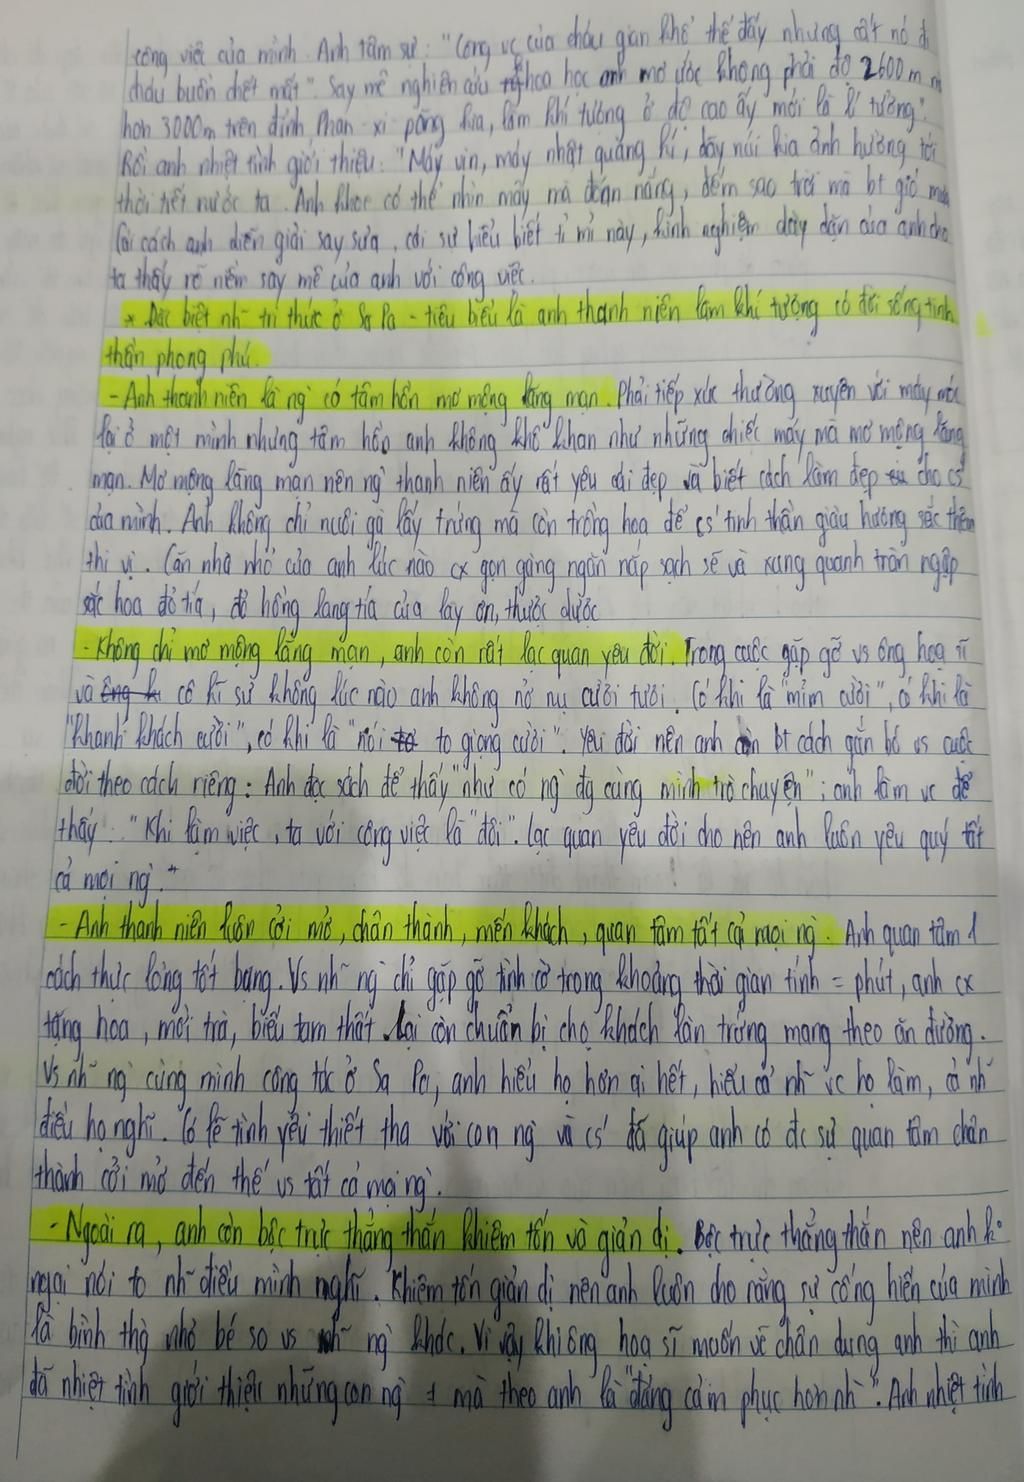 công việc của mình. Anh tâm sự: "Công vc của cháu gian khổ thế đấy nhưng cất nó đi
cháu buồn chết mất". Say mê nghiên cứu khoa học anh mơ ước không phải độ 2600m mà
hơn 3000m trên đỉnh Phan-xi-păng kia, làm khí tượng ở độ cao ấy mới là lí tưởng".
Rồi anh nhiệt tình giới thiệu: "Máy vin, máy nhật quang kí, dãy núi kia ảnh hưởng tới
thời tiết nước ta. Anh khoe có thể nhìn mây mà đoán nắng, đếm sao trời mà bt gió
Cái cách anh diễn giải say sưa, cái sự hiểu biết tỉ mỉ này, kinh nghiệm dày dặn của anh cho
ta thấy rõ niềm say mê của anh với công việc.
* Đặc biệt nh~ trí thức ở Sa Pa - tiêu biểu là anh thanh niên làm khí tượng có đời sống tinh
thần phong phú.
- Anh thanh niên là ng` có tâm hồn mơ mộng lãng mạn. Phải tiếp xúc thường xuyên với máy móc
lại ở một mình nhưng tâm hồn anh không khô khan như những chiếc máy mà mơ mộng lãng
mạn. Mơ mộng lãng mạn nên ng` thanh niên ấy rất yêu cái đẹp và biết cách làm đẹp cho cs'
của mình. Anh không chỉ nuôi gà lấy trứng mà còn trồng hoa để cs' tinh thần giàu hương sắc thêm
thi vị. Căn nhà nhỏ của anh lúc nào cx gọn gàng ngăn nắp sạch sẽ và xung quanh tràn ngập
sắc hoa đỏ tía, đỏ hồng lang tía của lay ơn, thược dược
- Không chỉ mơ mộng lãng mạn, anh còn rất lạc quan yêu đời. Trong cuộc gặp gỡ vs ông hoạ sĩ
và cô kĩ sư không lúc nào anh không nở nụ cười tươi. Có khi là "mỉm cười", có khi là
"khanh khách cười", có khi là "nói to giọng cười". Yêu đời nên anh còn bt cách gắn bó vs cuộc
đời theo cách riêng: Anh đọc sách để thấy "như có ng` đg cùng mình trò chuyện"; anh làm vc để
thấy: "Khi làm việc, ta với công việc là "đôi". Lạc quan yêu đời cho nên anh luôn yêu quý tất
cả mọi ng`."
- Anh thanh niên luôn cởi mở, chân thành, mến khách, quan tâm tất cả mọi ng`. Anh quan tâm 1
cách thực lòng tốt bụng. Vs nh~ ng` chỉ gặp gỡ tình cờ trong khoảng thời gian tính = phút, anh cx
tặng hoa, mời trà, biếu tam thất. Lại còn chuẩn bị cho khách làn trứng mang theo ăn đường.
Vs nh~ ng` cùng mình công tác ở Sa Pa, anh hiểu họ hơn ai hết, hiểu cả nh~ vc họ làm, cả nh~
điều họ nghĩ. Có lẽ tình yêu thiết tha với con ng` và cs' đã giúp anh có đc sự quan tâm chân
thành cởi mở đến thế vs tất cả mọi ng`.
- Ngoài ra, anh còn bộc trực thẳng thắn khiêm tốn và giản dị. Bộc trực thẳng thắn nên anh k°
ngại nói to nh~ điều mình nghĩ. Khiêm tốn giản dị nên anh luôn cho rằng sự cống hiến của mình
là bình thg` nhỏ bé so vs nh~ ng` khác. Vì vậy khi ông hoạ sĩ muốn vẽ chân dung anh thì anh
đã nhiệt tình giới thiệu những con ng` ≠ mà theo anh là "đáng cảm phục hơn nh`". Anh nhiệt tình